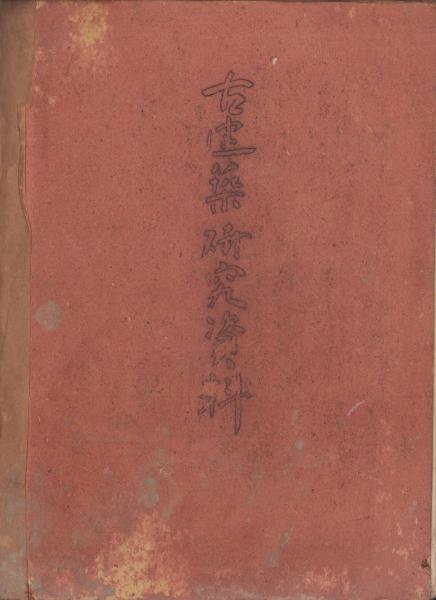 古建築研究資料